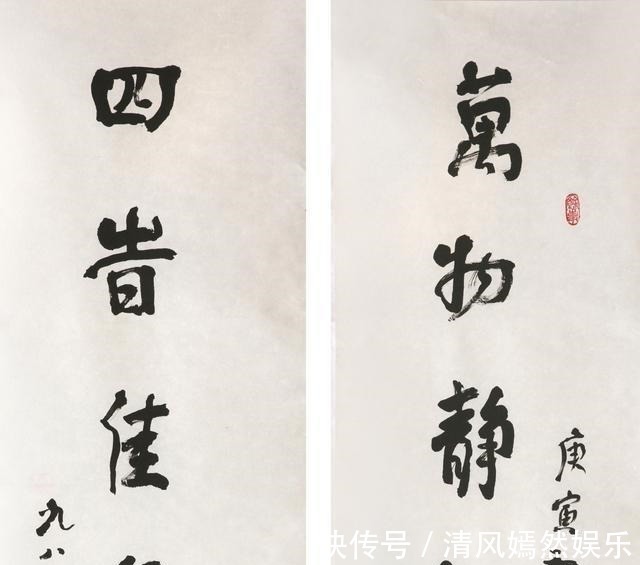 萬物静
庚寅
四旹佳
九八
快传号 / 清风嫣然娱乐